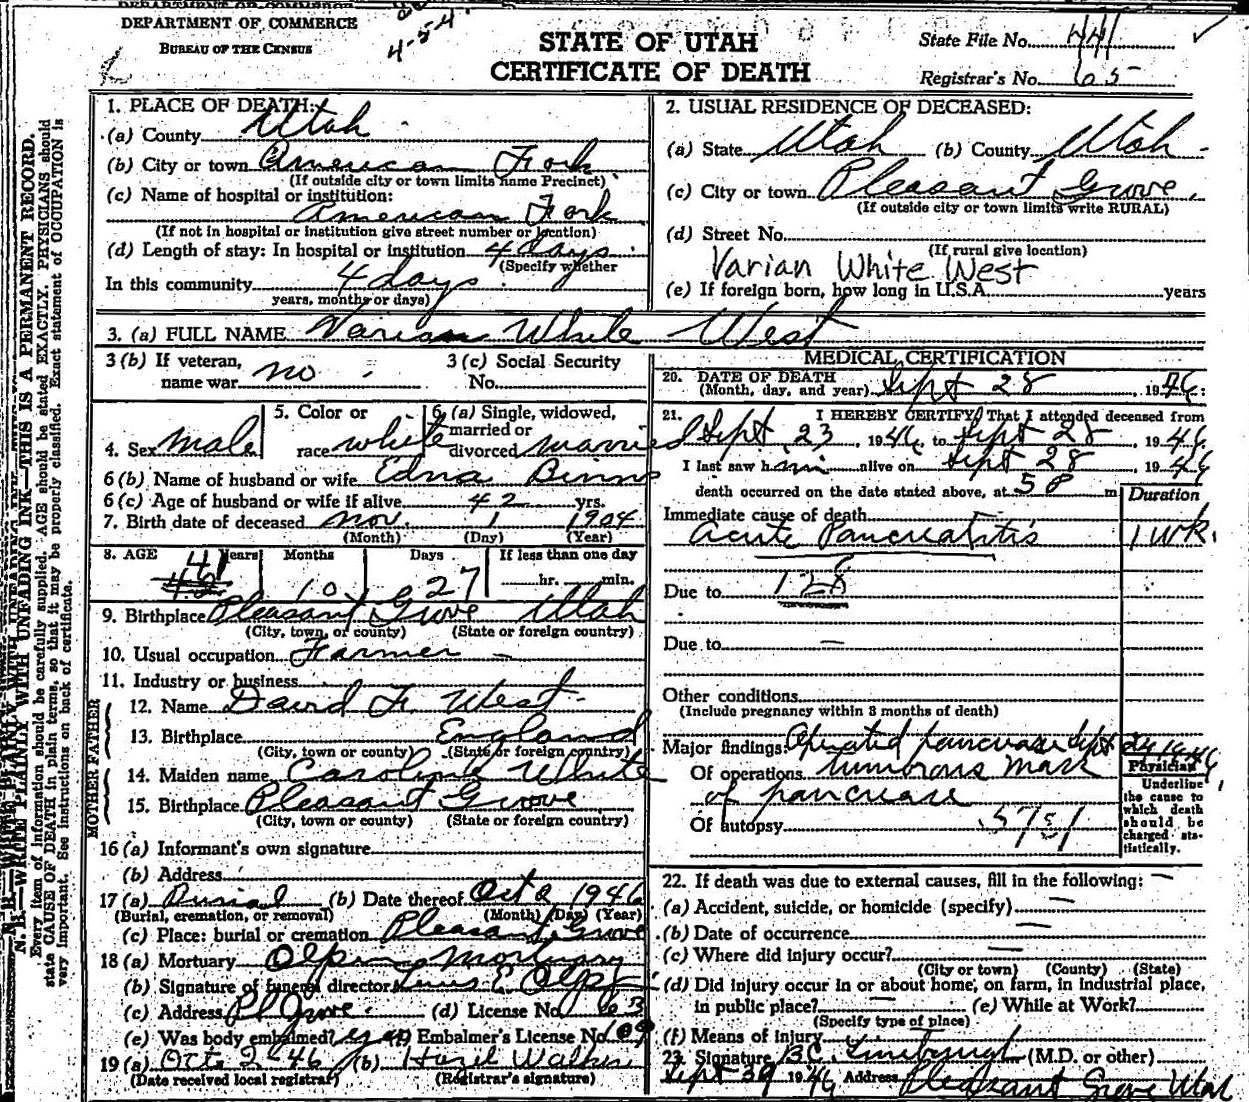 DEPARTMENT OF COMMERCE
DEPARTMENT OF COMMERCE
BUREAU OF THE CENSUS
4-5-4
STATE OF UTAH
CERTIFICATE OF DEATH
State File No. 441
Registrar's No. 65
N. B.—WRITE PLAINLY WITH UNFADING INK—THIS IS A PERMANENT RECORD.
Every item of information should be carefully supplied. AGE should be stated EXACTLY. PHYSICIANS should
state CAUSE OF DEATH in plain terms, so that it may be properly classified. Exact statement of OCCUPATION is
very important. See instructions on back of certificate.
1. PLACE OF DEATH:
(a) County Utah
(b) City or town American Fork
(If outside city or town limits name Precinct)
(c) Name of hospital or institution:
American Fork
(If not in hospital or institution give street number or location)
(d) Length of stay: In hospital or institution 4 days
(Specify whether
In this community 4 days
years, months or days)
2. USUAL RESIDENCE OF DECEASED:
(a) State Utah (b) County Utah
(c) City or town Pleasant Grove,
(If outside city or town limits write RURAL)
(d) Street No.
(If rural give location)
Varian White West
(e) If foreign born, how long in U.S.A. years
3. (a) FULL NAME Varian White West
3 (b) If veteran,
name war no
3 (c) Social Security
No.
4. Sex male
5. Color or
race white
6. (a) Single, widowed,
married or
divorced married
6 (b) Name of husband or wife Edna Binns
6 (c) Age of husband or wife if alive 42 yrs.
7. Birth date of deceased Nov. 1 1904
(Month) (Day) (Year)
8. AGE Years Months Days If less than one day
41 10 27 hr. min.
42
9. Birthplace Pleasant Grove Utah
(City, town, or county) (State or foreign country)
10. Usual occupation Farmer
11. Industry or business
FATHER
12. Name David F. West
13. Birthplace England
(City, town or county) (State or foreign country)
MOTHER
14. Maiden name Caroline White
15. Birthplace Pleasant Grove
(City, town or county) (State or foreign country)
16 (a) Informant's own signature
(b) Address
17 (a) Burial (b) Date thereof Oct 2 1946
(Burial, cremation, or removal) (Month) (Day) (Year)
(c) Place: burial or cremation Pleasant Grove
18 (a) Mortuary Olpin Mortuary
(b) Signature of funeral director E Olpin
(c) Address Pl Grove (d) License No. 63
(e) Was body embalmed? yes (f) Embalmer's License No. 109
19 (a) Oct 2 - 46 (b) Hazel Walker
(Date received local registrar) (Registrar's signature)
MEDICAL CERTIFICATION
20. DATE OF DEATH
(Month, day, and year) Sept 28, 1946
21. I HEREBY CERTIFY That I attended deceased from
Sept 23, 1946, to Sept 28, 1946
I last saw him alive on Sept 28, 1946
death occurred on the date stated above, at m
Duration
Immediate cause of death
Acute Pancreatitis 1 wk.
Due to 128
Due to —
Other conditions
(Include pregnancy within 3 months of death)
Major findings: Operated pancrease Sept 24 1946
Of operations tumorous mass
of pancrease
Of autopsy
Physician
Underline
the cause to
which death
should be
charged sta-
tistically.
22. If death was due to external causes, fill in the following: —
(a) Accident, suicide, or homicide (specify) —
(b) Date of occurrence —
(c) Where did injury occur? —
(City or town) (County) (State)
(d) Did injury occur in or about home, on farm, in industrial place,
in public place? — (e) While at Work?
(Specify type of place)
(f) Means of injury
23. Signature (M.D. or other)
Sept 30 1946 Address Pleasant Grove Utah